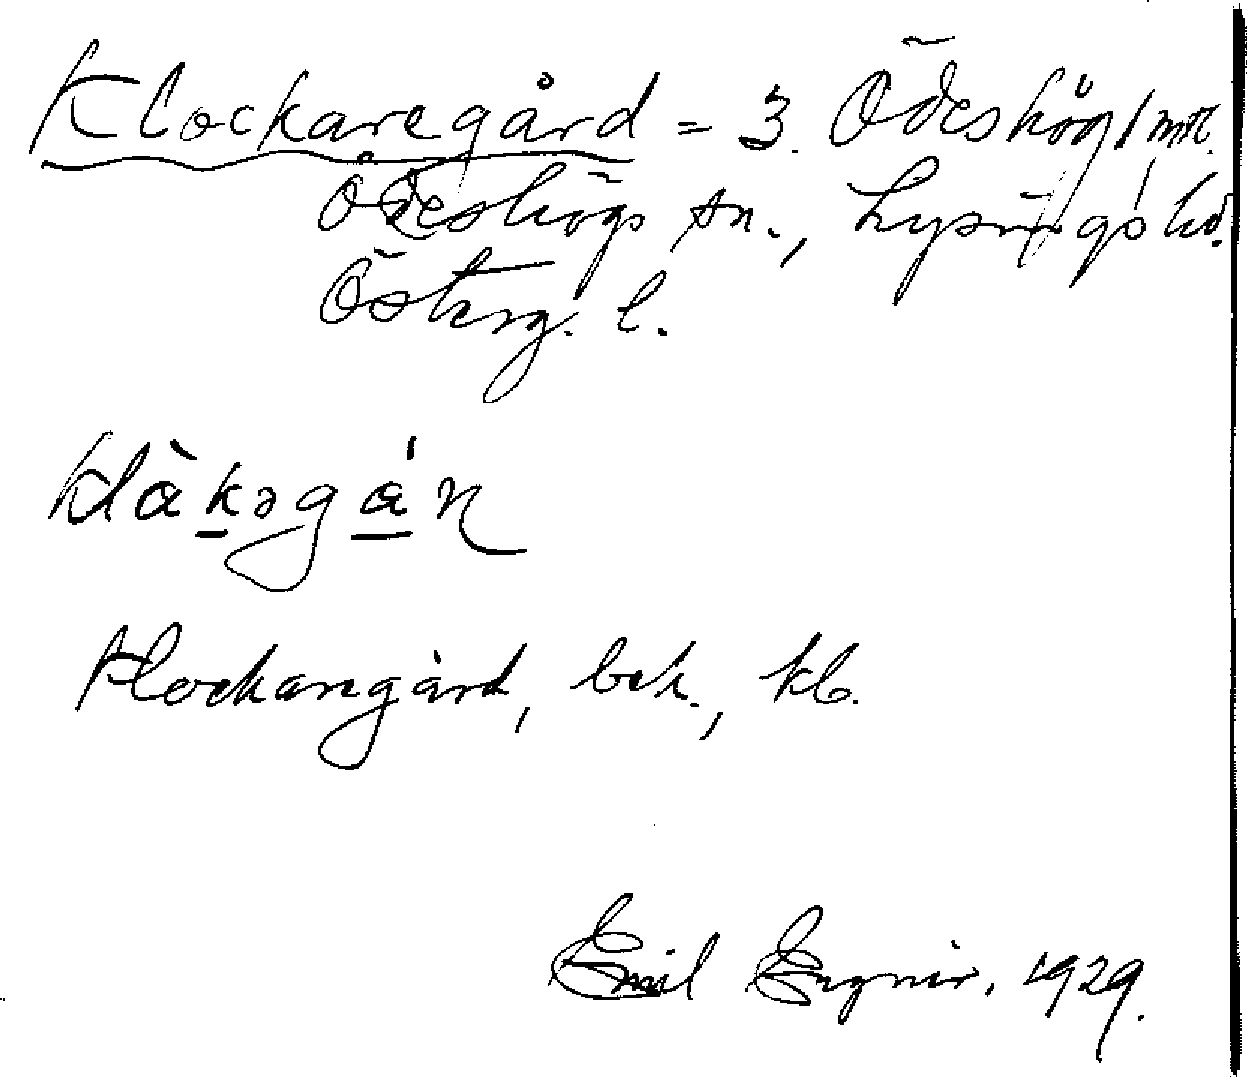 Klockaregård = 3. Ödeshög 1 mtl.
Ödeshögs sn., Lysings hd.
Österg. l.
klàkəgán
Klockaregård, bek., kb.
Emil 1929.